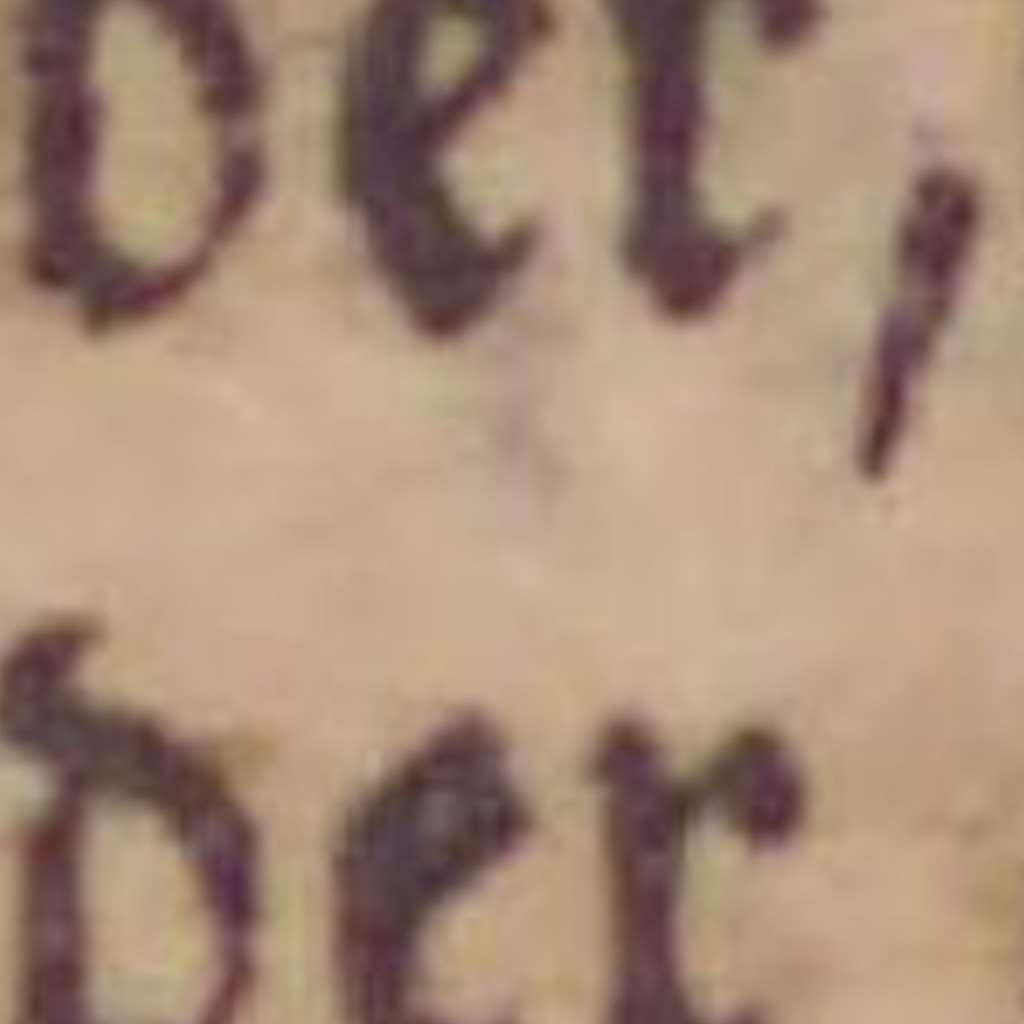 der,
der